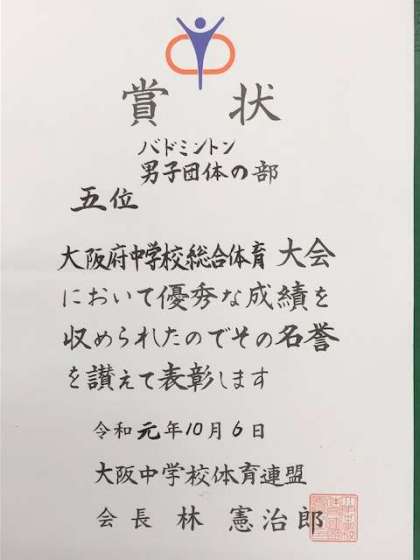 賞状
バドミントン
男子団体の部
五位
大阪府中学校総合体育大会
において優秀な成績を
収められたのでその名誉
を讃えて表彰します
令和元年10月6日
大阪中学校体育連盟
会長 林 憲治郎